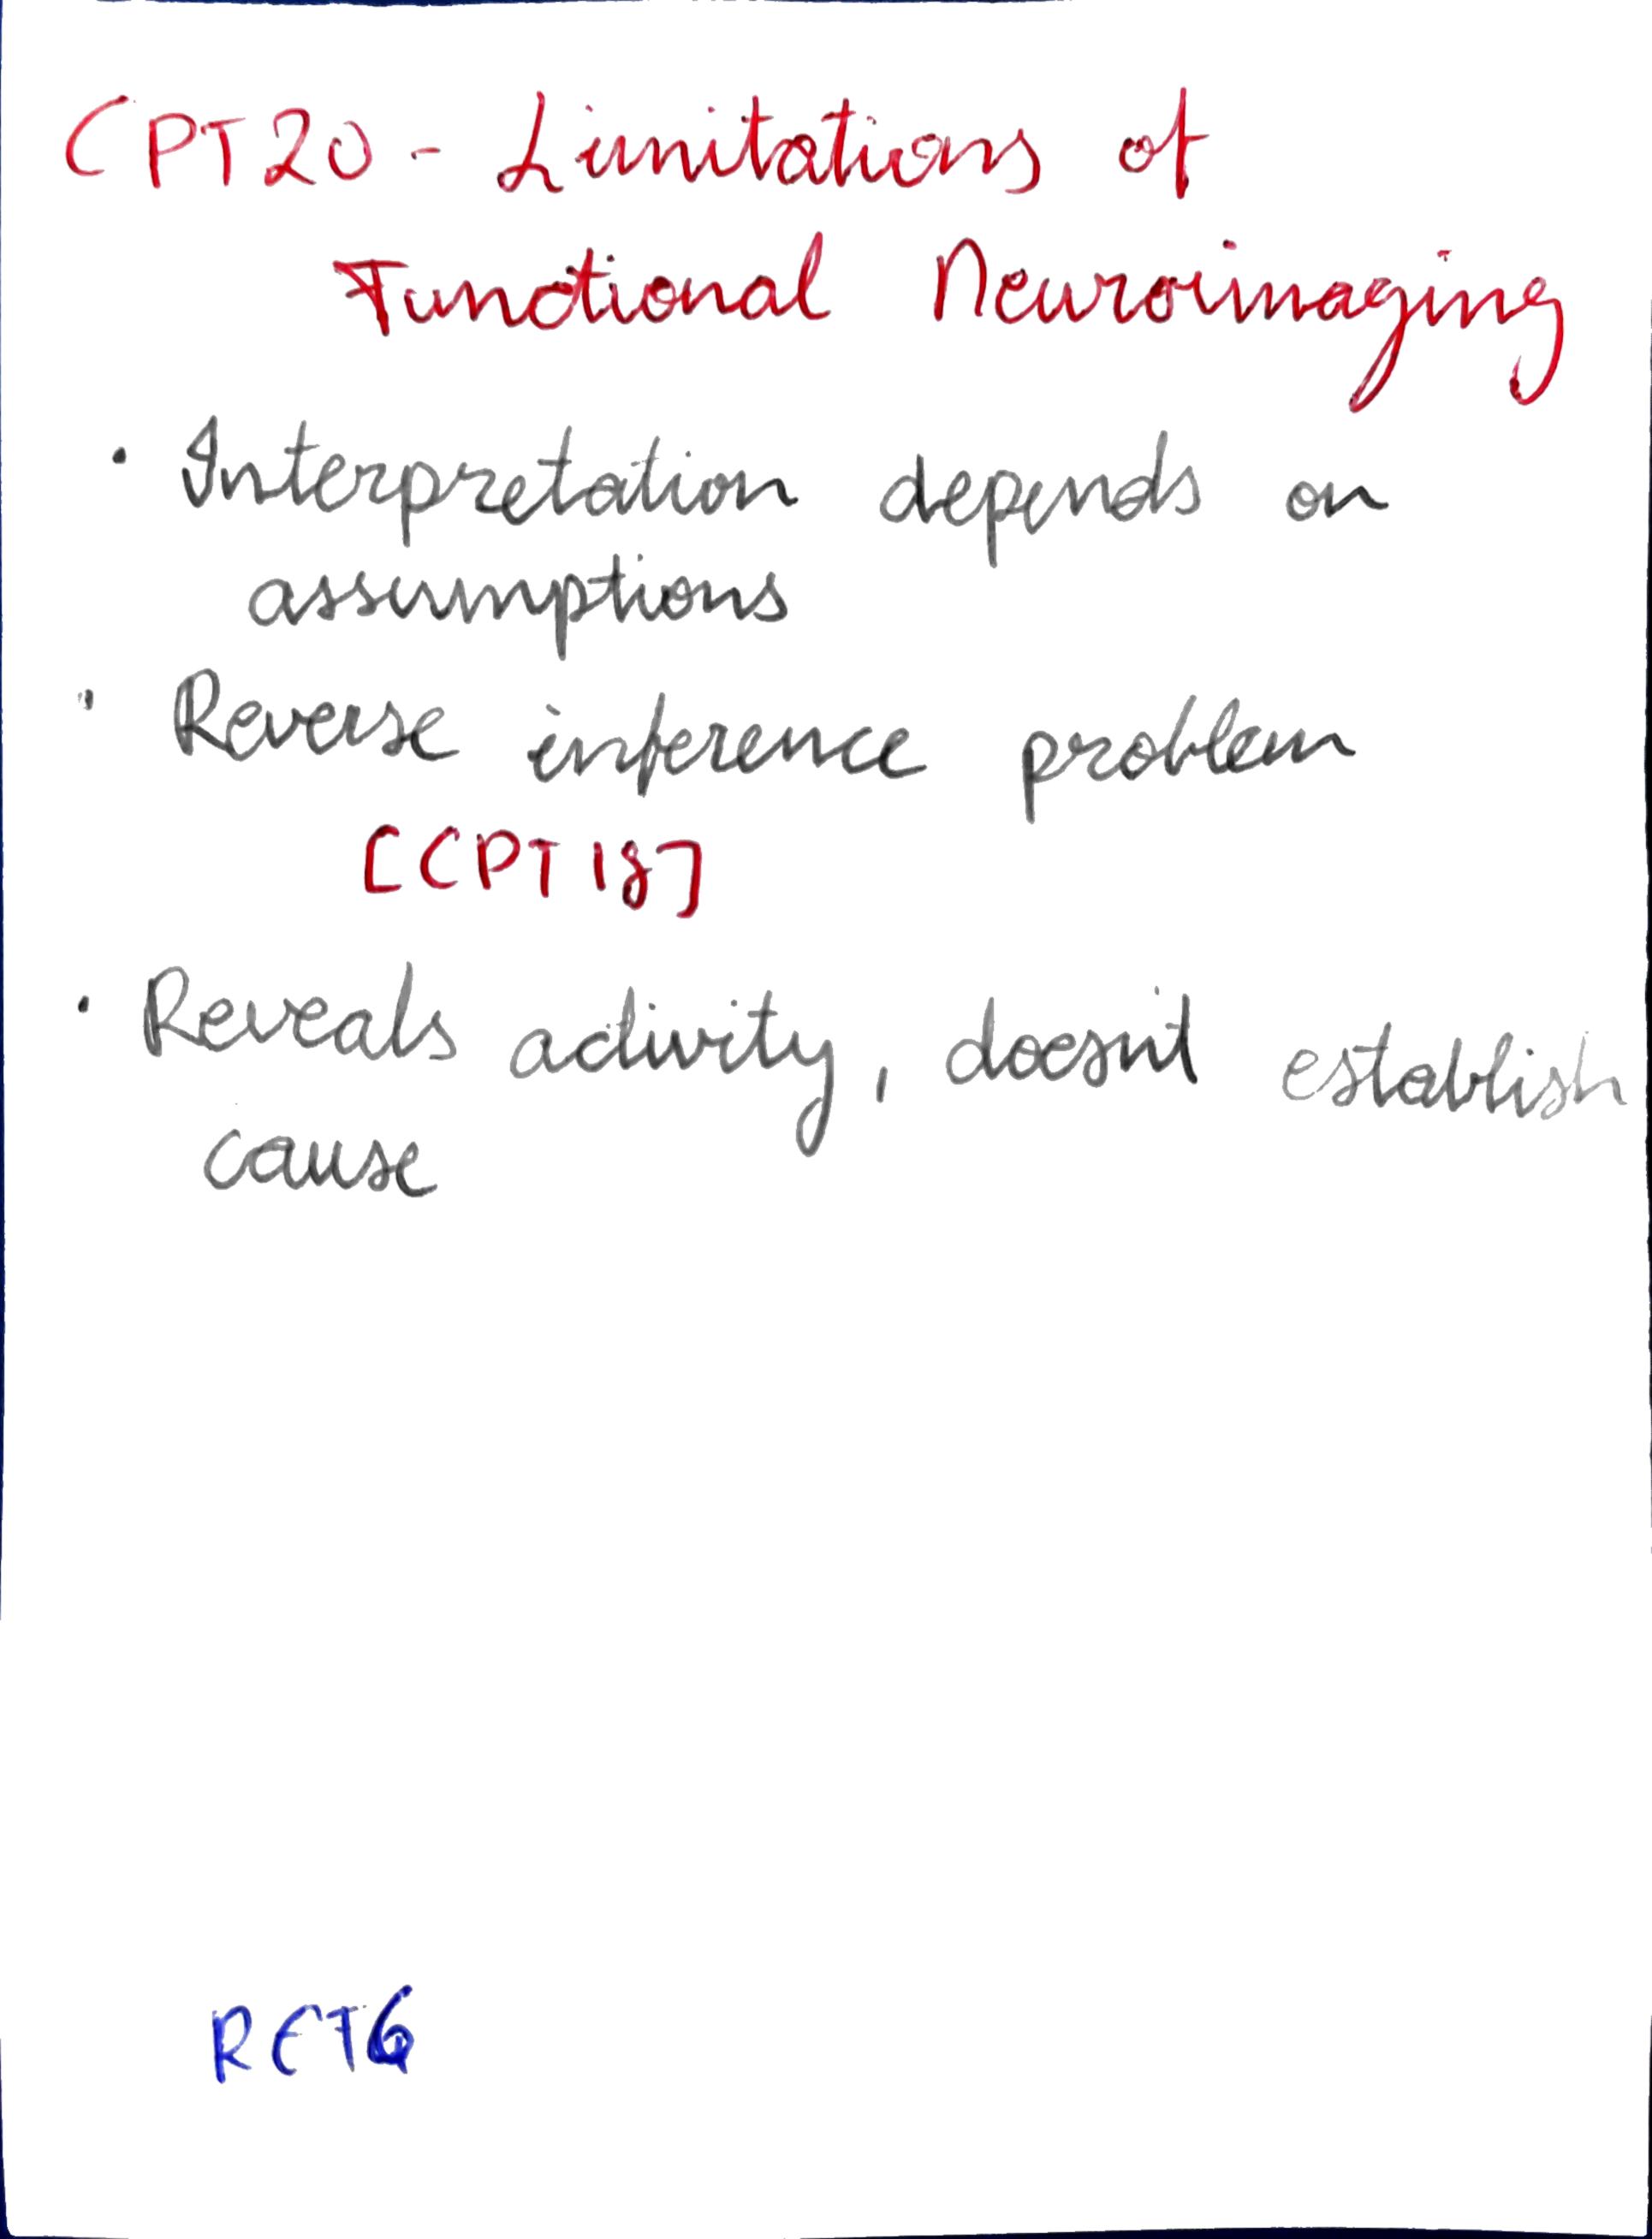 CPT20 - Limitations of
Functional Neuroimaging
· Interpretation depends on
assumptions
· Reverse inference problem
[CPT 18]
· Reveals activity, doesn't establish
cause
REF6